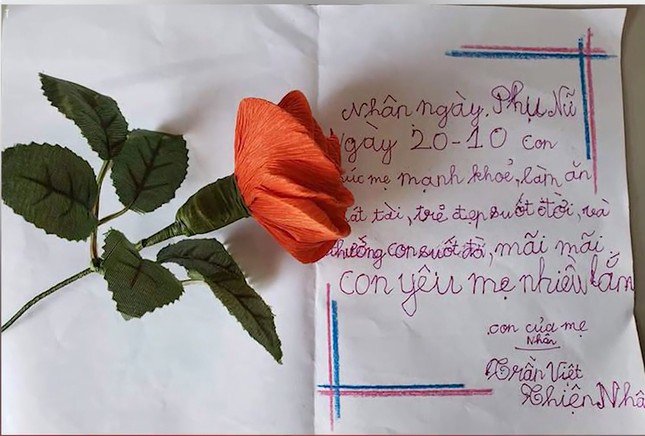 Nhân ngày Phụ Nữ
Ngày 20-10 con
úc mẹ mạnh khoẻ, làm ăn
át tài, trẻ đẹp suốt đời, và
thưởng con suốt đờ, mãi mãi.
con yêu mẹ nhiều lắm
con của mẹ
Nhân
Trần Việt
Thiện Nhâ